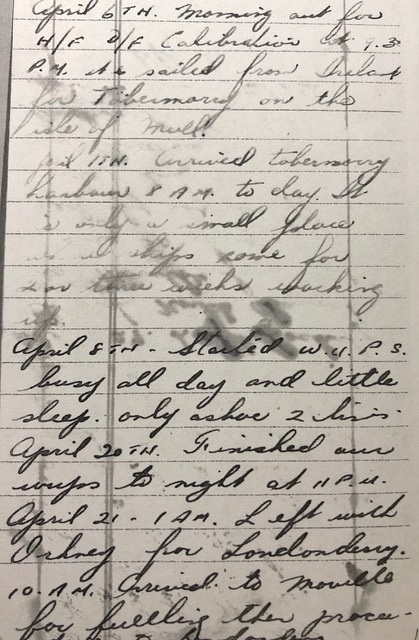 April 6TH. Morning out for
H/F D/F Calibration at 9.3
P.M. we sailed from Irelan
for Tobermorry on the
isle of Mull.
pril 7TH. Arrived tobermorry
harbour 8 A.M. to day. It
is only a small place
ships come for
two or three weeks working
up.
April 8TH - Started W.U.P.S.
busy all day and little
sleep. only ashore 2 hrs.
April 20TH. Finished our
wups to night at 11 P.M.
April 21 - 1 AM. Left with
Orkney for Londonderry.
10 A.M. Arrived to Moville
for fuelling then procee-